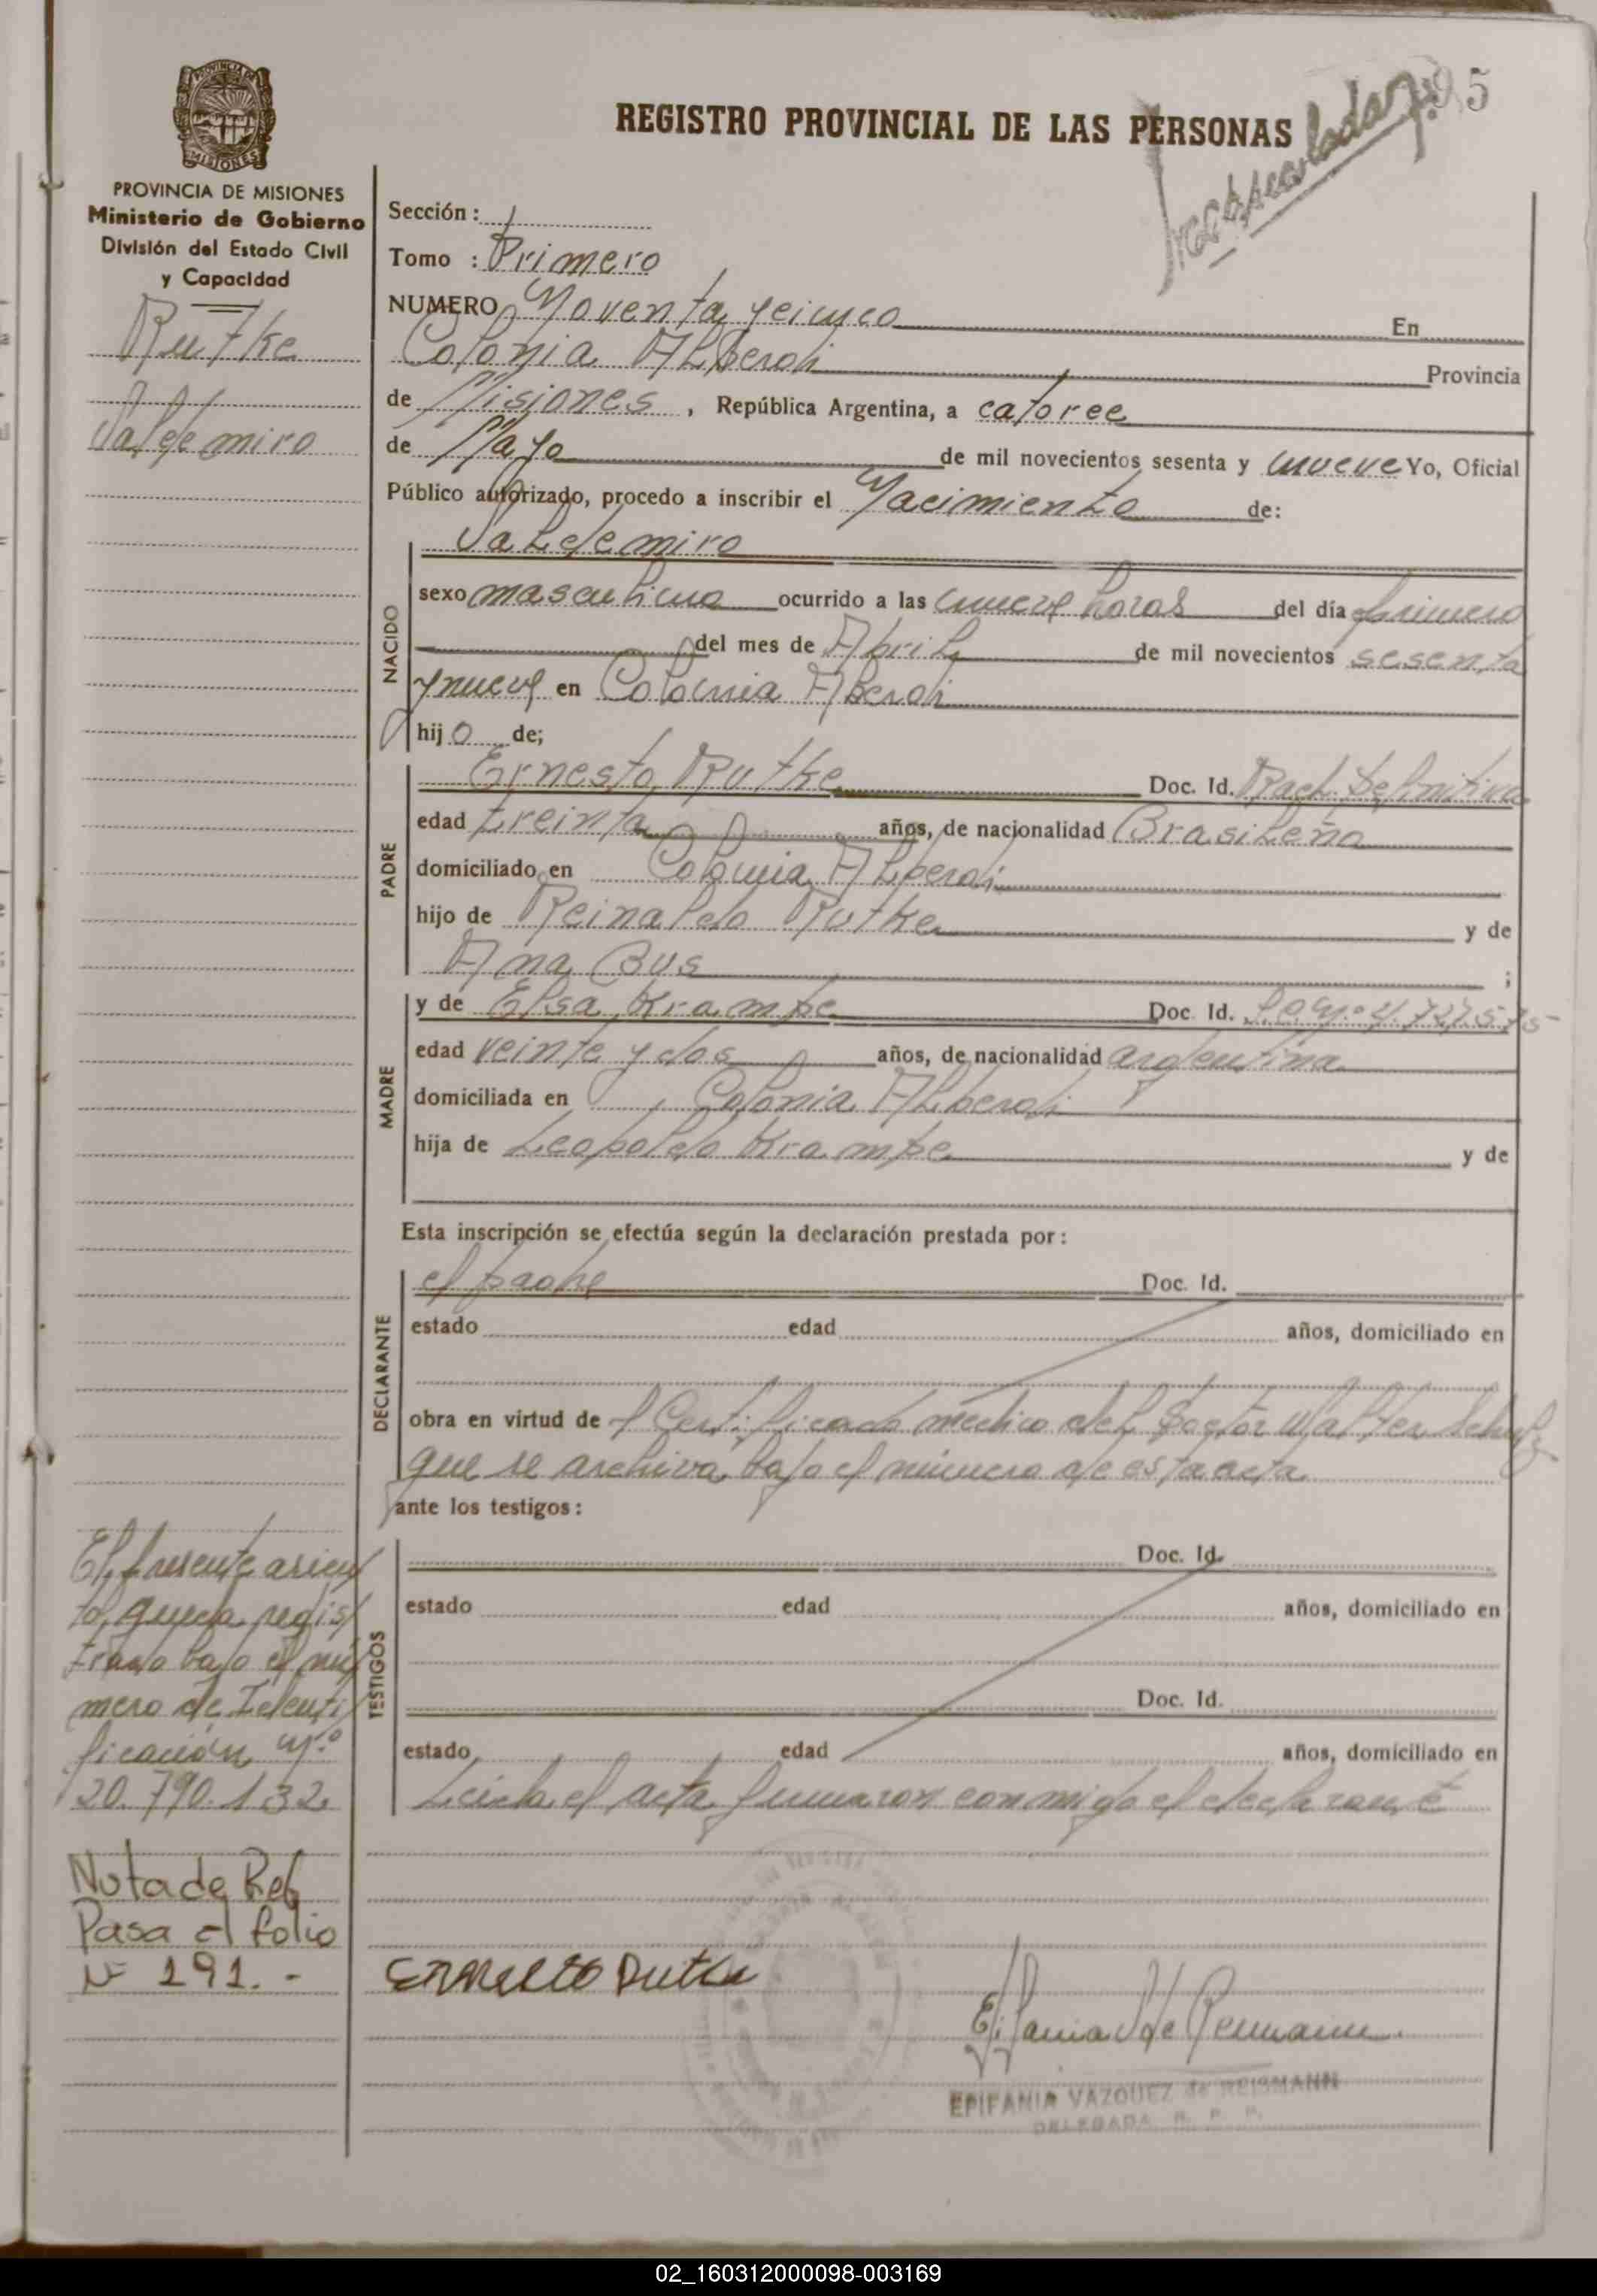 95
PROVINCIA DE MISIONES
Ministerio de Gobierno
División del Estado Civil
y Capacidad
Rutke
Valdemiro
REGISTRO PROVINCIAL DE LAS PERSONAS
Sección: 1
Tomo : Primero
NUMERO Noventa y cinco En
Colonia Alberdi Provincia
de Misiones, República Argentina, a catorce
de Mayo de mil novecientos sesenta y nueve Yo, Oficial
Público autorizado, procedo a inscribir el Nacimiento de:
Valdemiro
NACIDO
sexo masculino ocurrido a las nueve horas del día primero
del mes de Abril de mil novecientos sesenta
y nueve en Colonia Alberdi
hijo de;
PADRE
Ernesto Rutke Doc. Id. Rad. Definitiva
edad treinta años, de nacionalidad Brasileña
domiciliado en Colonia Alberdi
hijo de Reinaldo Rutke y de
Ana Bus ;
MADRE
y de Elsa Krampe Doc. Id. L.C.Nº 4.727.575
edad veinte y dos años, de nacionalidad argentina
domiciliada en Colonia Alberdi
hija de Leopoldo Krampe y de
Esta inscripción se efectúa según la declaración prestada por:
DECLARANTE
el padre Doc. Id.
estado edad años, domiciliado en
obra en virtud del Certificado médico del Doctor Walter Schulz
que se archiva bajo el número de esta acta
ante los testigos:
TESTIGOS
Doc. Id.
estado edad años, domiciliado en
Doc. Id.
estado edad años, domiciliado en
Leida el acta firmaron conmigo el declarante
El presente asien
to, queda regis
trado bajo el nú
mero de Identi
ficación Nº
20.790.132
Nota de Ref
Pasa al folio
Nº 191.-
Ernesto Rutke
Epifania V de Reismann
EPIFANIA VAZQUEZ de REISMANN
DELEGADA R. P. P.
02_160312000098-003169